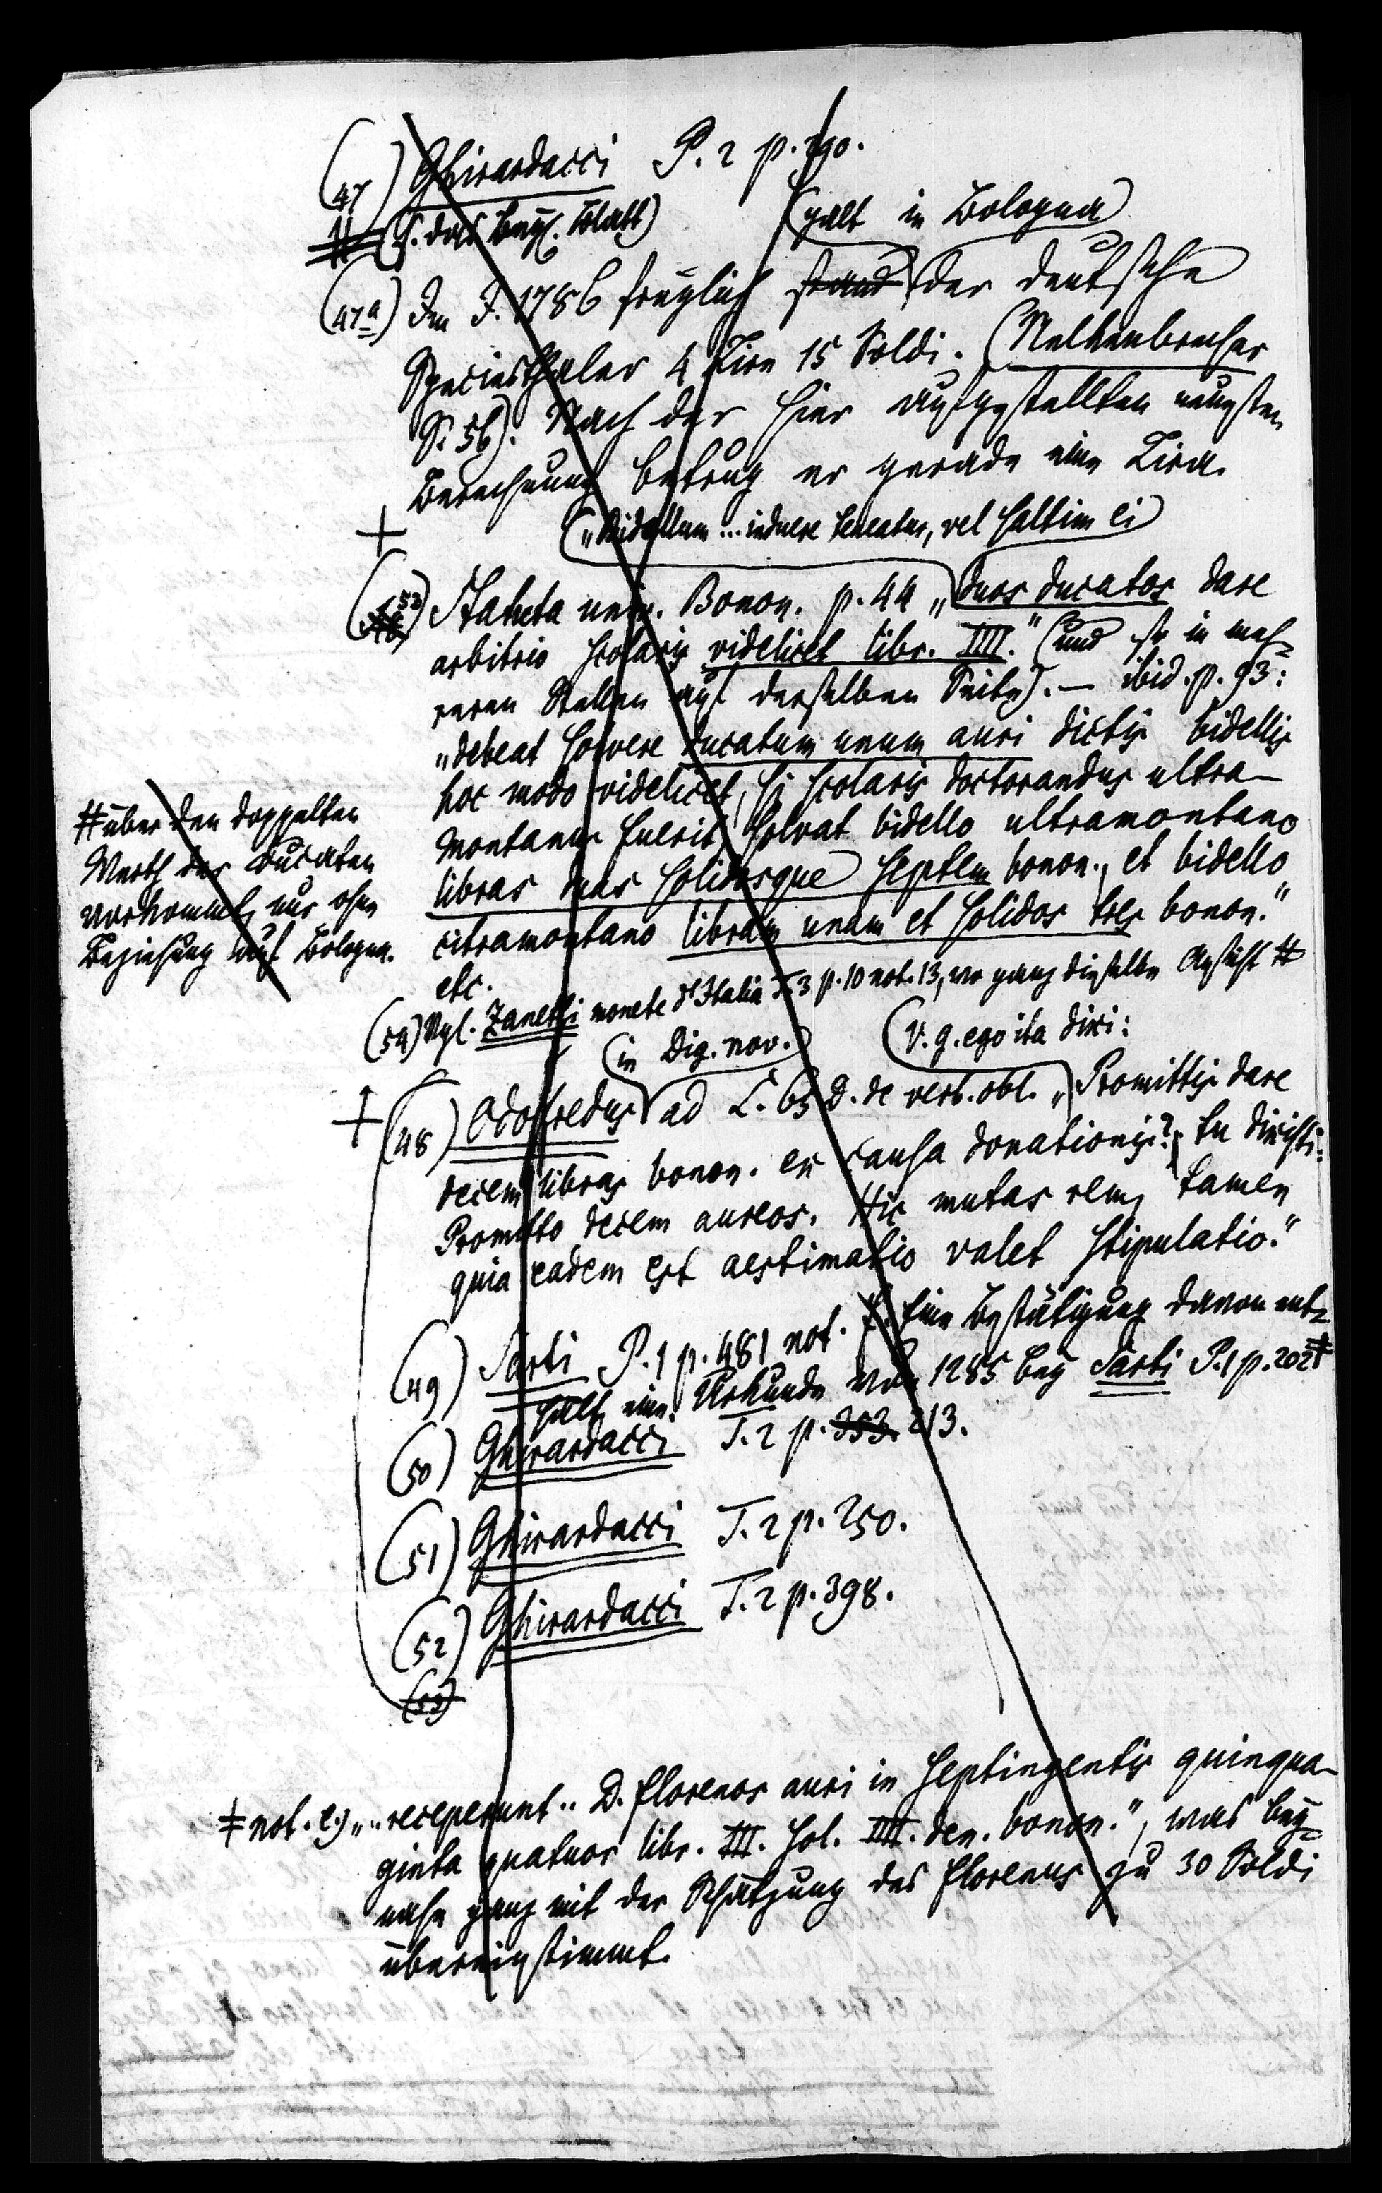 (47) Ghirardacci P. 2 p. 290.
(s. das beyl. Blatt)
(galt in Bologna)
(47a) Im J. 1786 freylich stand der deutsche
Speciesthaler 4 Lire 15 Soldi. (Nelkenbrecher
S. 56). Nach der hier aufgestellten neuesten
Berechnung betrug er gerade eine Lira.
+
("Bidellum ... induere teneatur, vel saltim ei)
(53) Statuta univ. Bonon. p. 44 "duos ducatos dare
arbitrio scolaris videlicet libr. IIII." (und so in meh-
reren Stellen auf derselben Seite). — ibid. p. 93:
"debeat solvere ducatum unum auri dictis bidellis
hoc modo videlicet, si scolaris doctorandus ultra-
montanus fuerit, solvat bidello ultramontano
libras duas solidosque septem bonon., et bidello
citramontano libram unam et solidos tres bonon."
etc.
(54) Vgl. Zanetti monete d'Italia T. 3 p. 10 not. 13, wo ganz dieselbe Ansicht #
# über den doppelten
Werth der Ducaten
vorkommt, nur ohne
Beziehung auf Bologna.
(in Dig. nov.) (v. g. ego ita dixi:
+ (48) Odofredus ad L. 65 D. de verb. obl. "Promittis dare
decem libras bonon. ex causa donationis?, tu dixisti:
Promitto decem aureos. Hic mutas rem, tamen
quia eadem est aestimatio valet stipulatio."
(49) Sarti P. 1 p. 481 not. Eine Bestätigung davon ent-
hält eine Urkunde von 1285 bey Sarti P. 1 p. 202 ‡
(50) Ghirardacci T. 2 p. 353. 213.
(51) Ghirardacci T. 2 p. 250.
(52) Ghirardacci T. 2 p. 398.
(53)
‡ not. e.) ".. receperunt .. D. florenos auri in septingentis quinqua-
ginta quatuor libr. III. sol. IIII. den. bonon.", was bey-
nahe ganz mit der Schätzung des florenus zu 30 Soldi
übereinstimmt.